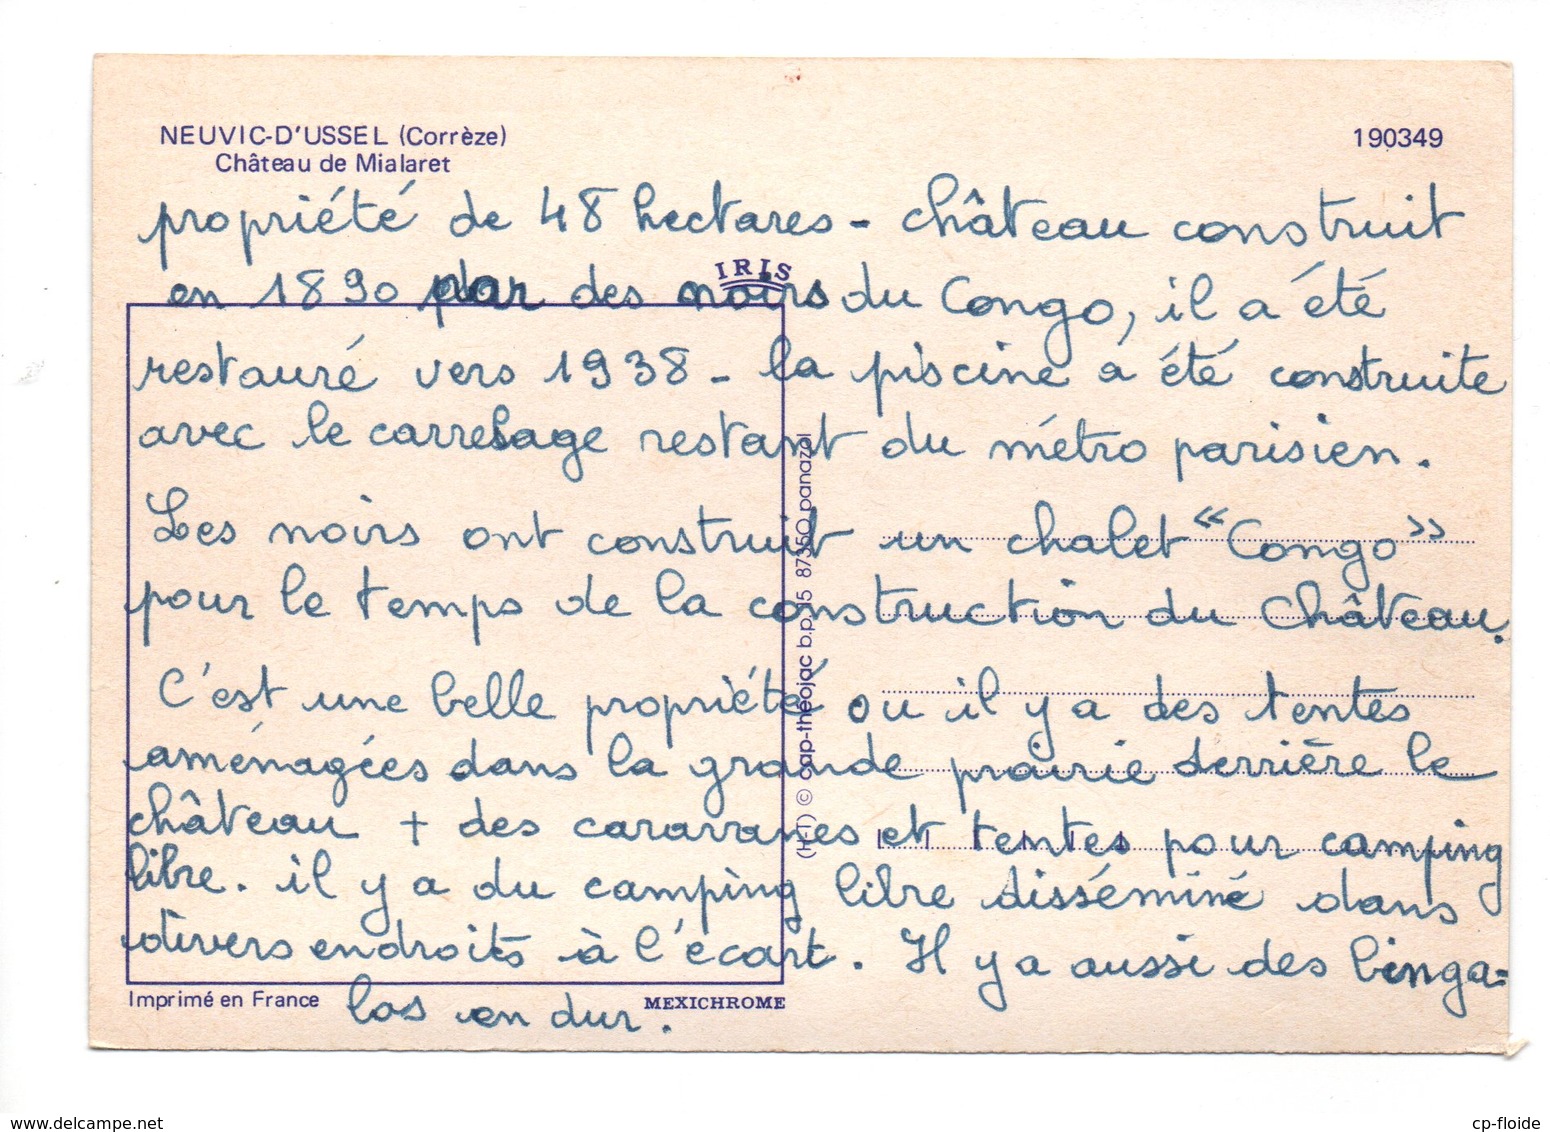 NEUVIC-D'USSEL (Corrèze)
Château de Mialaret
190349
propriété de 48 hectares - château construit
IRIS
en 1890 par des noirs du Congo, il a été
restauré vers 1938 - la piscine a été construite
avec le carrelage restant du métro parisien.
Les noirs ont construit un chalet "Congo"
pour le temps de la construction du château.
C'est une belle propriété ou il y a des tentes
aménagées dans la grande prairie derrière le
château + des caravanes et tentes pour camping
libre. il y a du camping libre disséminé dans
divers endroits à l'écart. Il y a aussi des binga=
los en dur.
(H-T) © cap-théojac b.p. 15 87350 panazol
Imprimé en France
MEXICHROME
www.delcampe.net
cp-floide